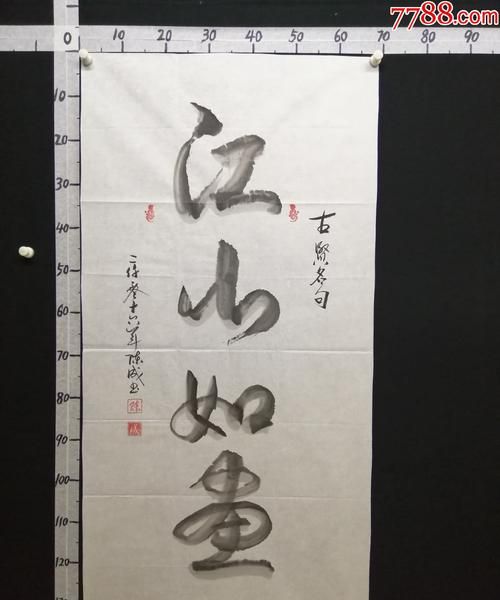 7788.com
0 10 20 30 40 50 60 70 80 90
10
20
30
40
50
60
70
80
90
100
110
120
古賢名句
江山如画
二仟零十六年陈成书